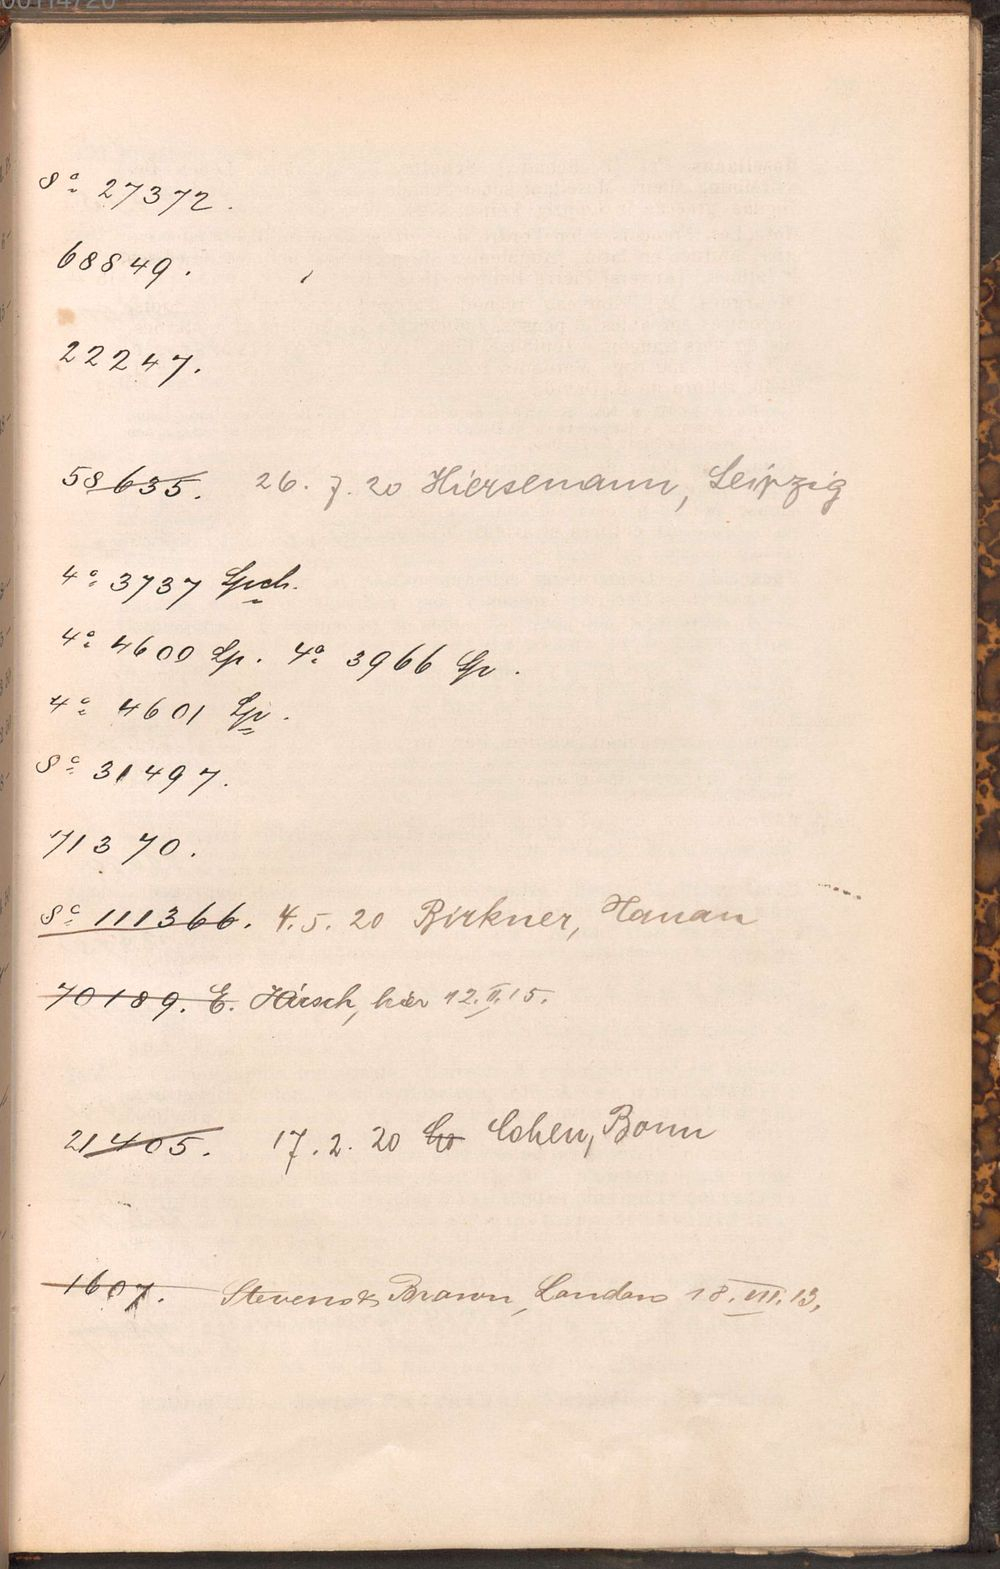 8° 27372.
68849.
22247.
58635. 26. 7. 20 Hiersemann, Leipzig
4° 3737 Lpch.
4° 4600 Lp. 4° 3966 Lp.
4° 4601 Lp.
8° 31497.
71370.
8° 111366. 4. 5. 20 Birkner, Hanau
70189. E. Hirsch, hier 12. II. 15.
21405. 17. 2. 20 Co Cohen, Bonn
1607. Stevens & Brown, London 18. VIII. 13.